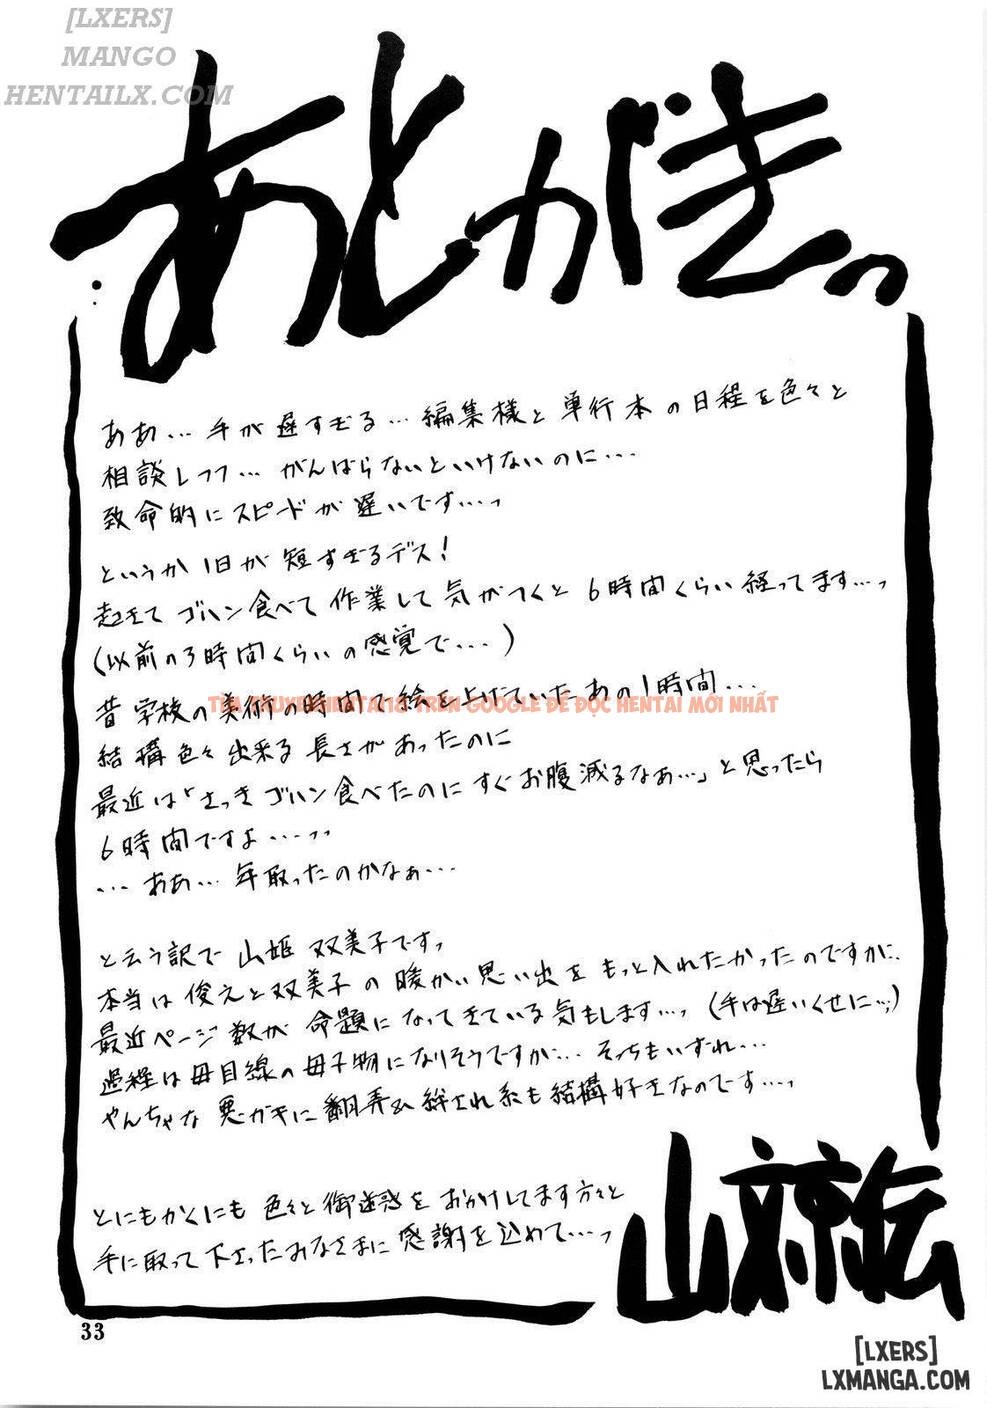 [LXERS]
MANGO
HENTAILX.COM
あとがきっ
ああ…手が遅すぎる…編集様と単行本の日程を色々と
相談しつつ…がんばらないといけないのに…
致命的にスピードが遅いです…っ
というか1日が短すぎるデス!
起きてゴハン食べて作業して気がつくと6時間くらい経ってます…っ
(以前の3時間くらいの感覚で…)
昔学校の美術の時間で絵を上げていたあの1時間…
TÌM TRUYENHENTAI18 TRÊN GOOGLE ĐỂ ĐỌC HENTAI MỚI NHẤT
結構色々出来る長さがあったのに
最近は「さっきゴハン食べたのにすぐお腹減るなぁ…」と思ったら
6時間ですよ…っっ
…ああ…年取ったのかなぁ…
と云う訳で山姫 双美子ですっ
本当は俊之と双美子の暖かい思い出をもっと入れたかったのですが…
最近ページ数が命題になってきている気もします…っ(手は遅いくせに…)
過程は母目線の母子物になりそうですが…そっちもいずれ…
やんちゃな悪ガキに翻弄&絆され系も結構好きなのです…っ
とにもかくにも色々と御迷惑をおかけしてます方々と
手に取って下さったみなさまに感謝を込めて…っ
33
[LXERS]
LXMANGA.COM